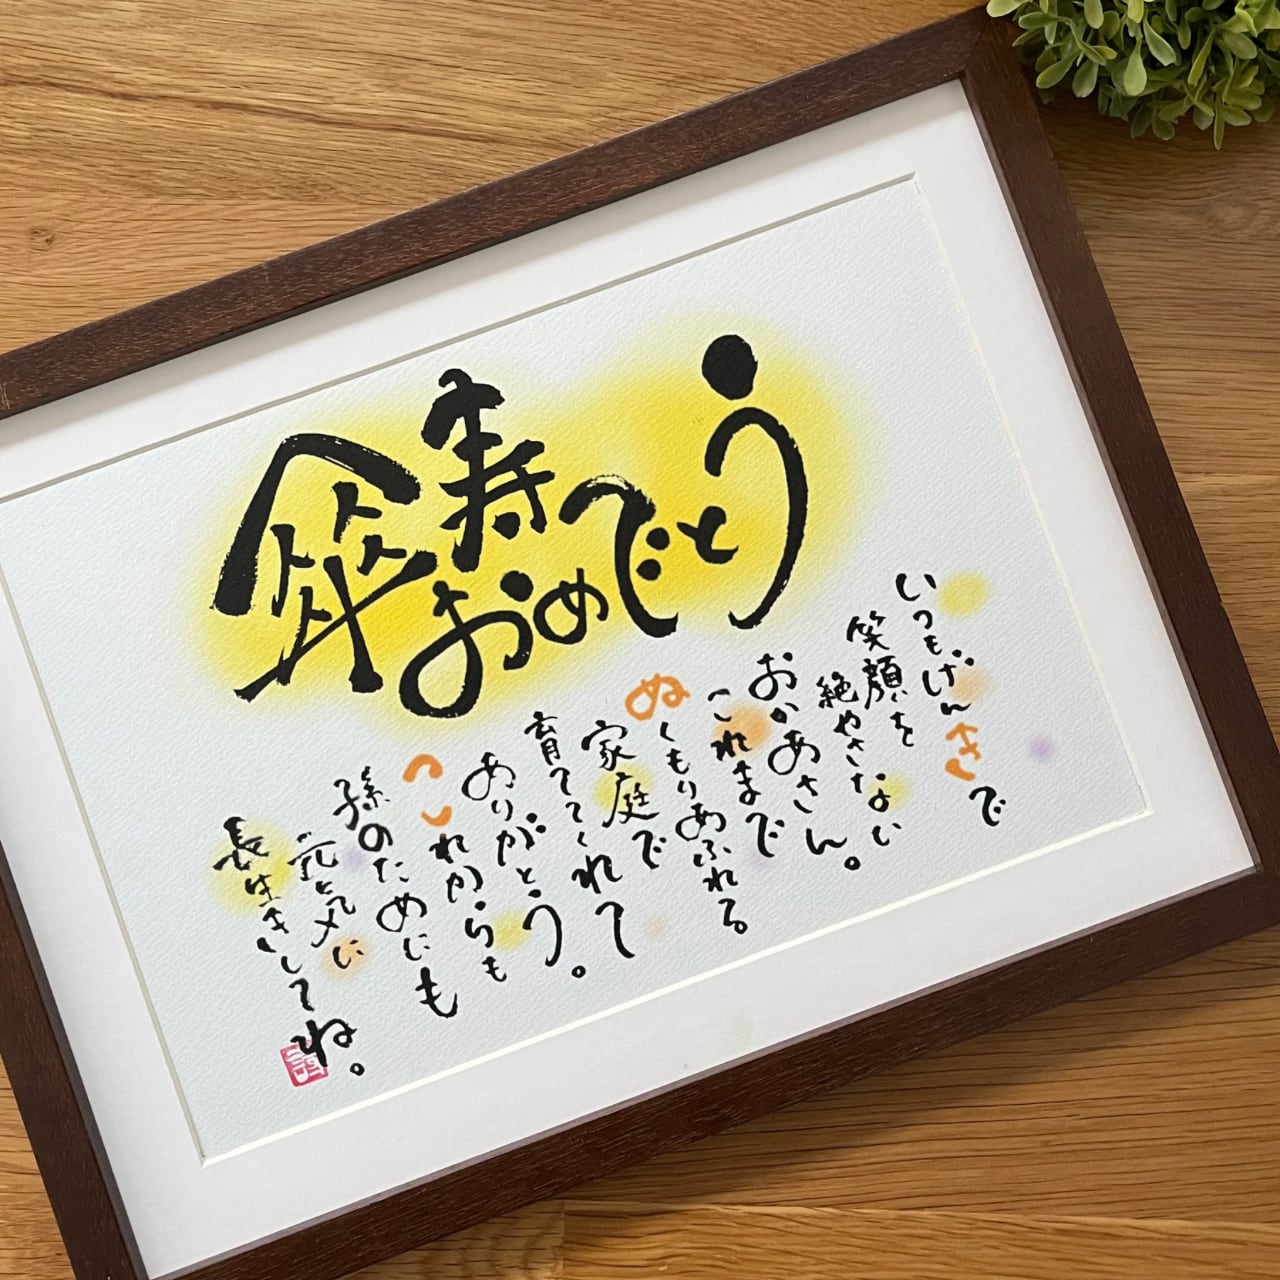 傘寿
おめでとう
いつもげんきで
笑顔を
絶やさない
おかあさん。
これまで
ぬくもりあふれる
家庭で
育ててくれて
ありがとう。
これからも
孫のためにも
元気に
長生きしてね。